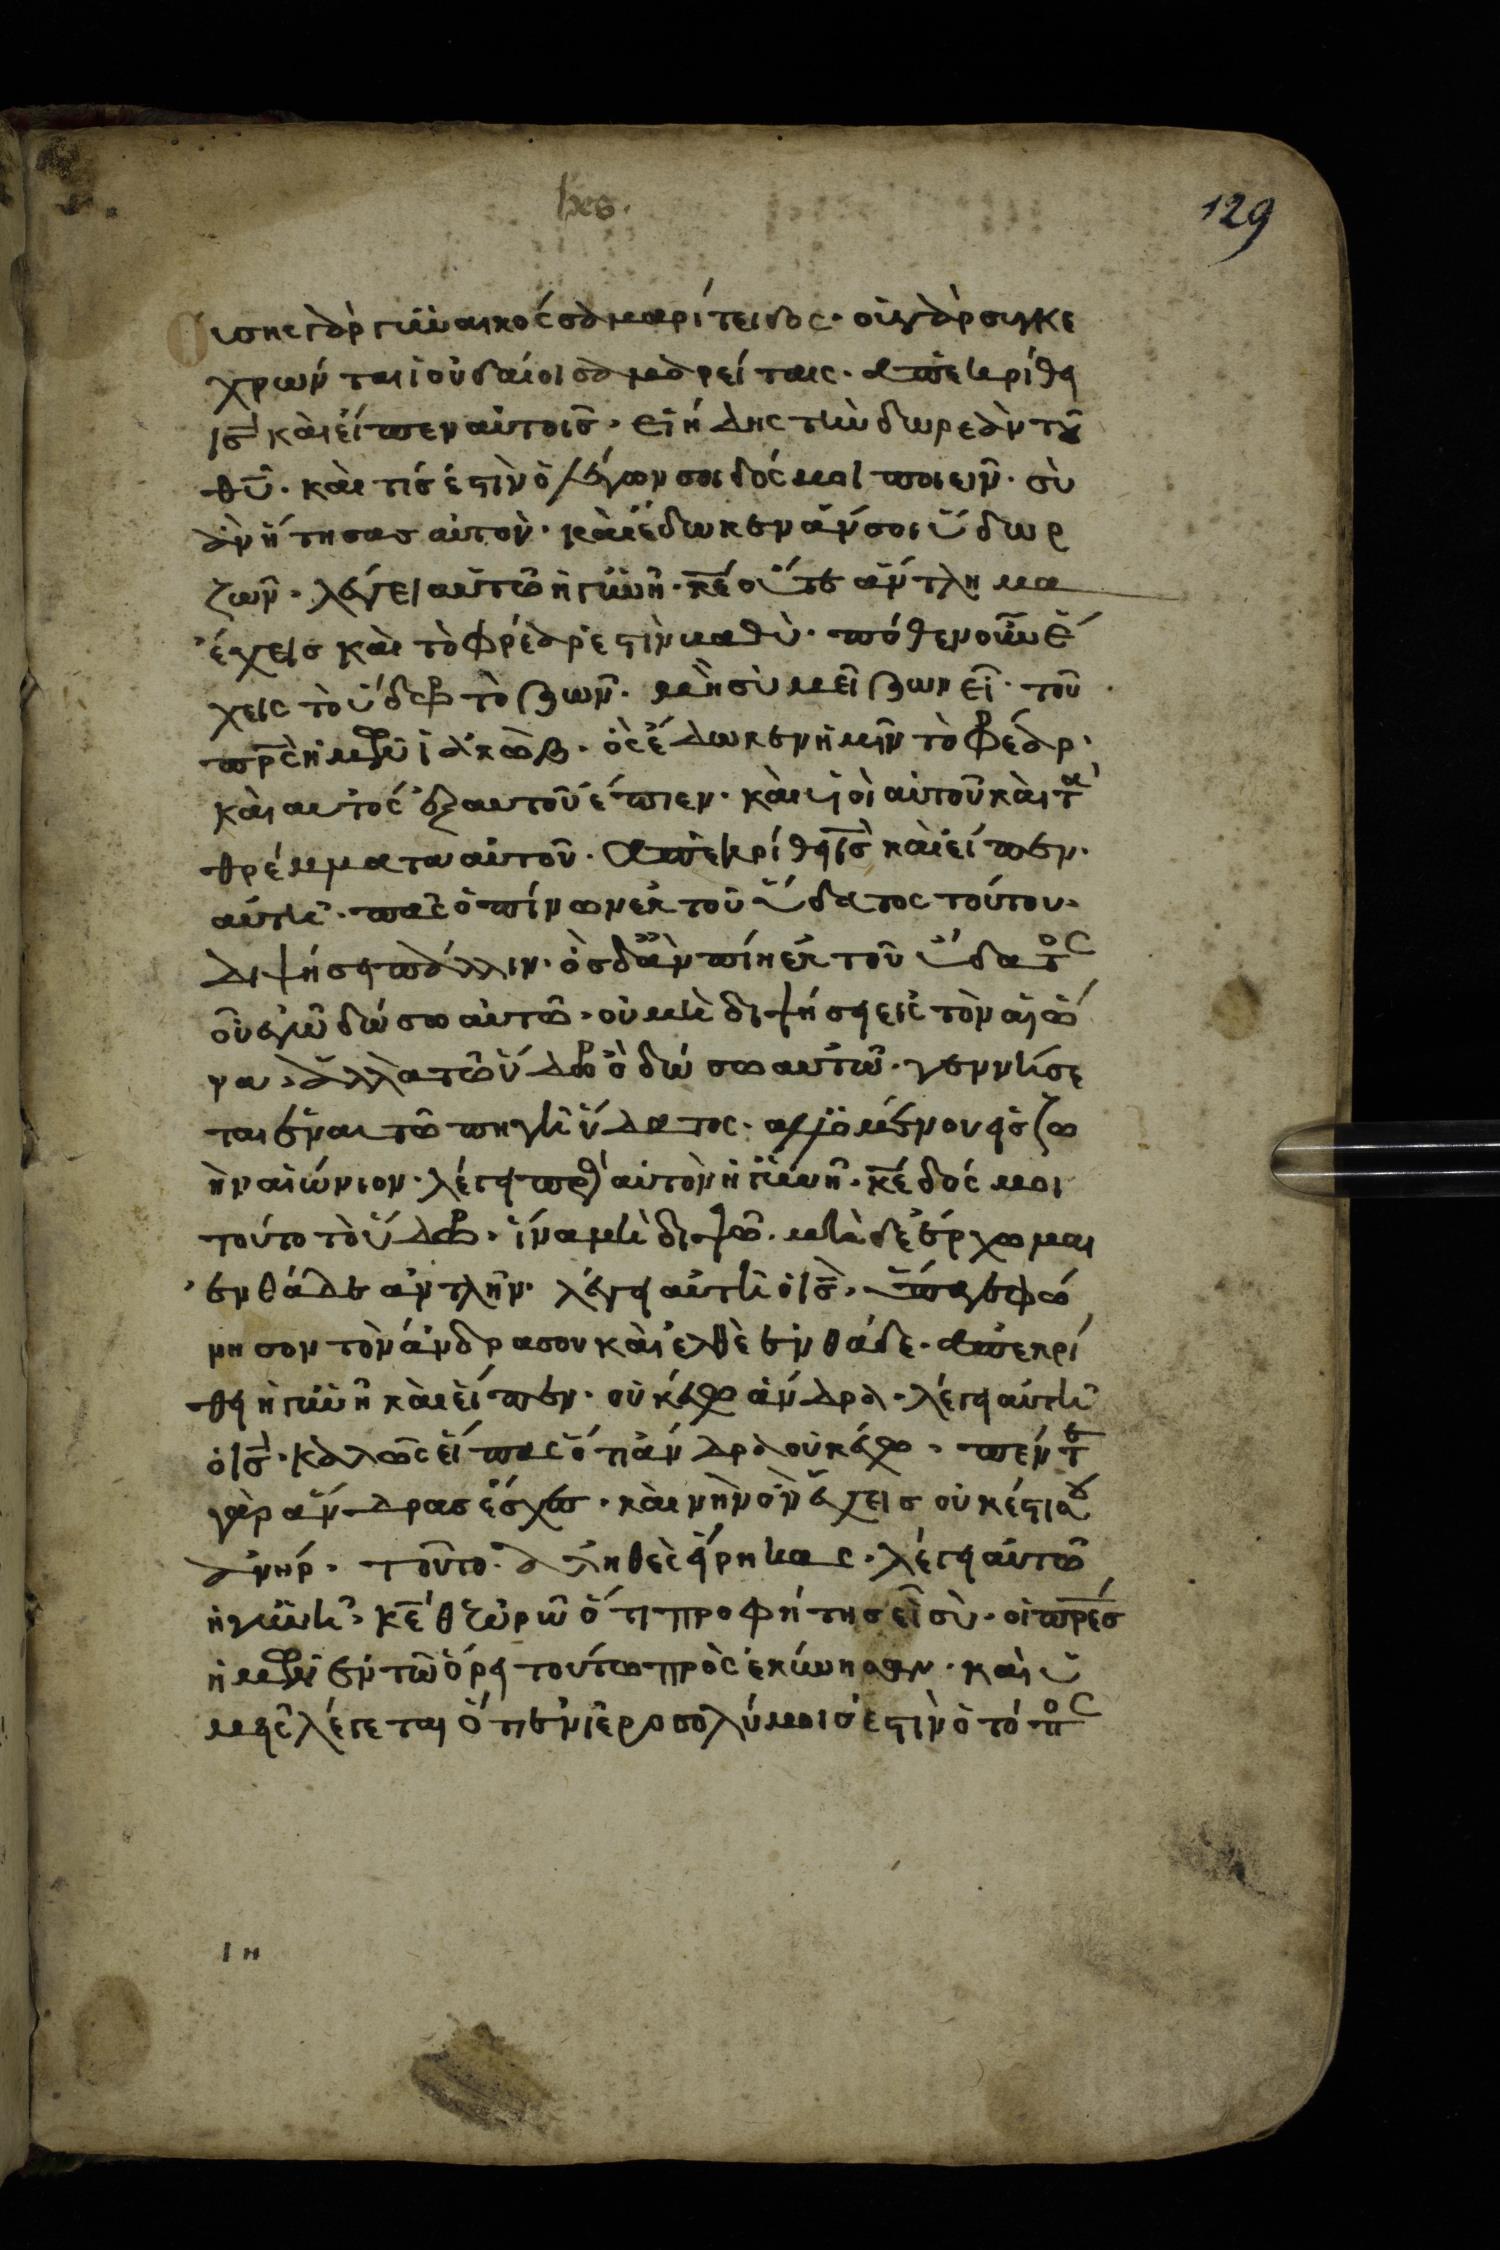 hes.
129
ουσης γὰρ γϋναικὸς σαμαρίτειδος· οὐ γὰρ συγκε
χρῶνται ἰουδαίοι σαμαρείταις· ἀπεκρίθη
ις̅ καὶ εἶπεν αὐτοις· εἰ ἤδης τὴν δωρεὰν τοῦ
θῦ· καὶ τίς ἐστὶν ὁ λέγων σοι δός μοι ποιειν· σὺ
ἂν ἤτησας αὐτὸν· καὶ ἔδωκεν ἄν σοι ὕδωρ
ζων· λέγει αὐτῶ ἡ γϋνὴ· κε̅ οὔτε ἄντλημα
ἔχεις καὶ τὸ φρέαρ ἐστὶν βαθὺ· πόθεν οὖν ἔ
χεις τὸ ὕδωρ τὸ ζων· μὴ σὺ μείζων εἶ· τοῦ
πρς̅ ἡμῶν ἰακὼβ· ὃς ἔδωκεν ἡμῖν τὸ φρέαρ·
καὶ αυτὸς ἐξ αυτοῦ ἔπιεν· καὶ υἱοὶ αὐτοῦ καὶ τὰ
θρέμματα αὐτοῦ· ἀπεκρίθη ις̅ καὶ εἶπεν·
αὐτῆ· πας ὁ πίνων ἐκ τοῦ ὕδατος τούτου·
διψήση πάλλιν· ὃς δ᾽ ἂν πίη ἐκ τοῦ ὕδατος
οὗ ἐγὼ δώσω αὐτῶ· οὐ μὴ διψήση εἰς τὸν αἰῶ
να· ἀλλὰ τῶ ὕδωρ ὃ δώσω αὐτῶ· γεννήσε
ται ἐν αυτῶ πηγὴ ὕδατος· αλλομένου εἰς ζω
ὴν αἰώνιον· λέγει πρὸς αὐτὸν ἡ γϋνὴ· κε̅ δός μοι
τούτο τὸ ὕδωρ· ἵνα μὴ διψῶ· μὴ δὲ ἔρχωμαι
ενθάδε ἀντλῆν· λέγει αὐτῆ ὁ ις̅· ὕπαγε φώ
νησον τὸν ἄνδρα σου καὶ ελθὲ ἐνθάδε· ἀπεκρί
θη ἡ γϋνὴ καὶ εἶπεν· οὐκ ἔχω ἄνδρα· λέγει αὐτῆ
ὁ ις̅· καλῶς εἶπας ὅτι ἄνδρα οὐκ ἔχω· πέντε
γὰρ ἄνδρας ἔσχες· καὶ νῦν ὃν ἔχεις οὐκ ἔστι σου
ἀνήρ· τοῦτο ἀληθὲς εἴρηκας· λέγει αὐτῶ
ἡ γϋνὴ· κε̅ θεωρῶ ὅτι προφήτης εἶ σὺ· οἱ πρές
ἡμῶν ἐν τῶ ὄρει τούτω προς ἐκύνησαν· καὶ ὑ
μεῖς λέγεται ὅτι ἐν ἱεροσολύμοις ἐστὶν ὁ τόπος
ιη